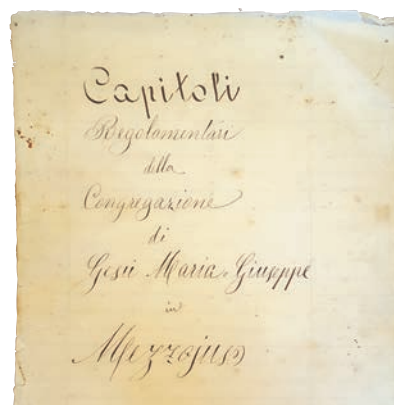 Capitoli
Regolamentari
della
Congregazione
di
Gesù Maria Giuseppe
in
Mezzojuso